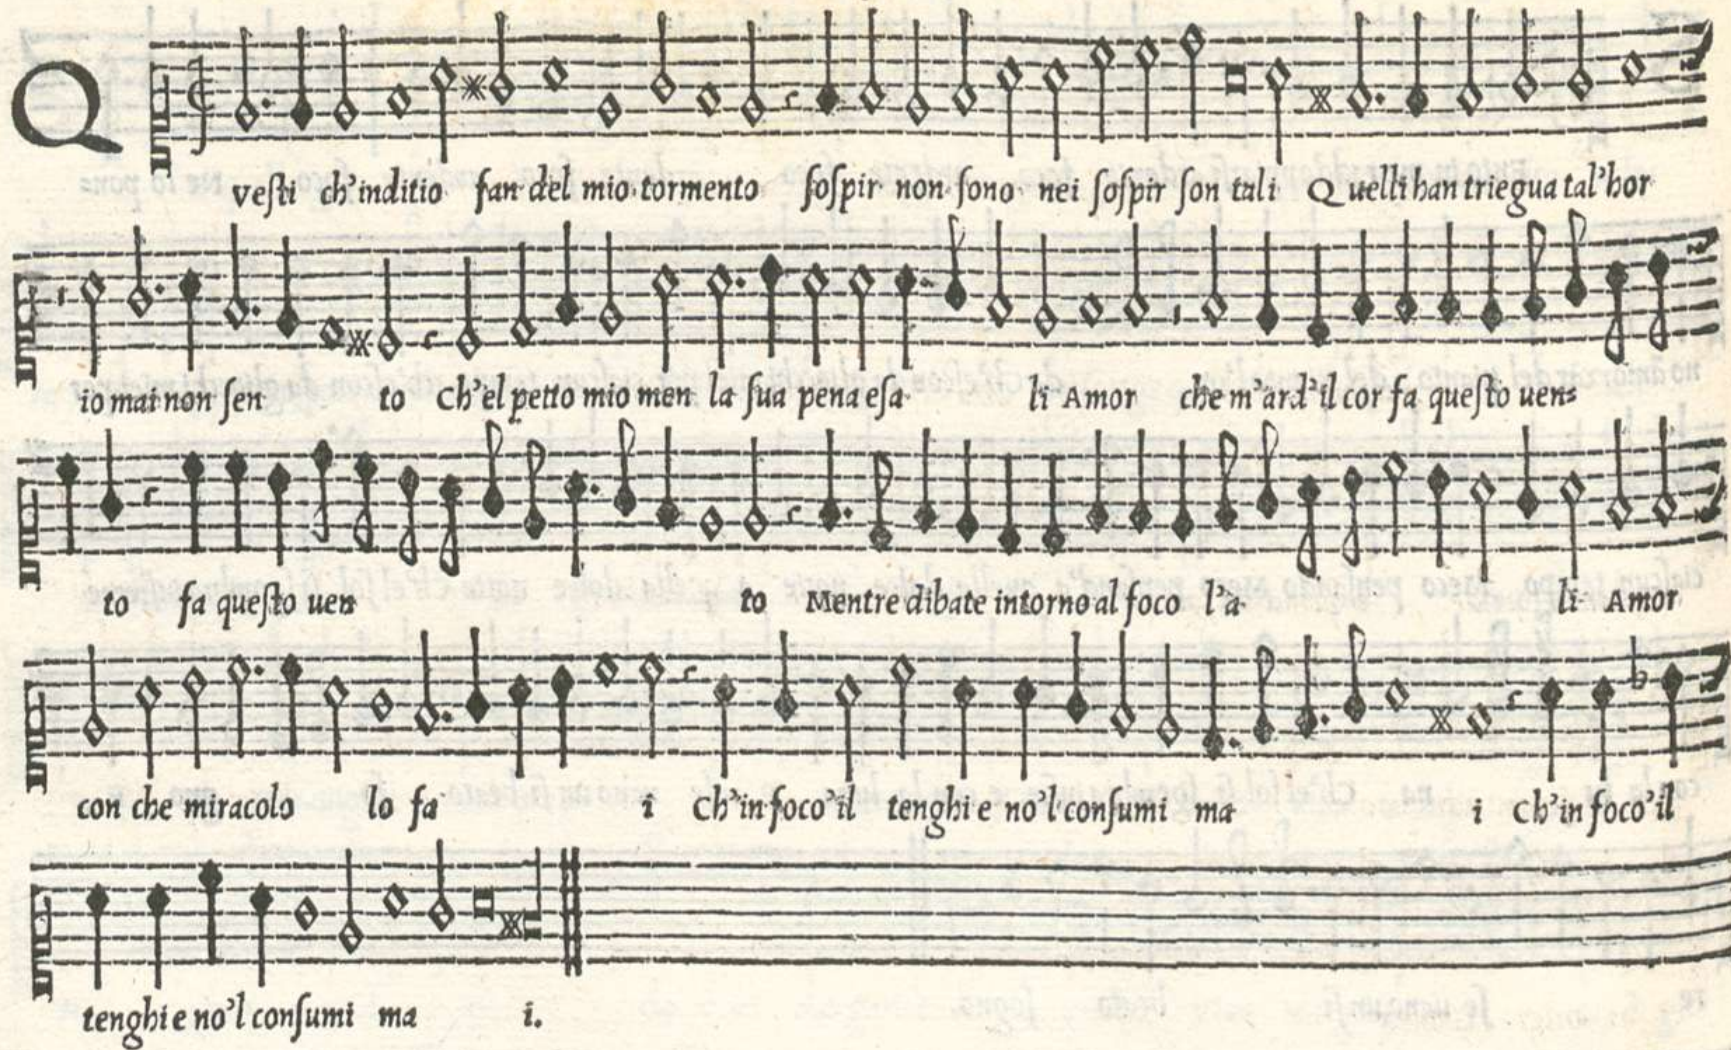 Q veſti ch'inditio fan del mio tormento ſoſpir non ſono nei ſoſpir ſon tali Quelli han triegua tal'hor
io mai non ſen to Ch'el petto mio men la ſua pena eſa li Amor che m'ard'il cor fa queſto uen=
to fa queſto uen to Mentre dibate intorno al foco l'a li Amor
con che miracolo lo fa i Ch'in foco'il tenghi e no'l conſumi ma i Ch'in foco'il
tenghi e no'l conſumi ma i.